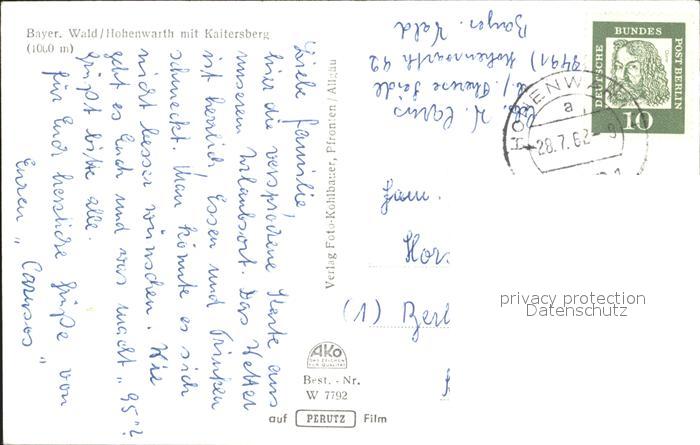 Bayer. Wald/Hohenwarth mit Kaitersberg
(1000 m)
Liebe Familie,
hier die versprochene Karte aus
unserem Urlaubsort. Das Wetter
ist herrlich! Essen und Trinken
schmeckt. Man könnte es sich
nicht besser wünschen. Wie
geht es Euch und was macht „95"?
Grüßt bitte alle.
Für Euch herzliche Grüße von
Euren „Carusos"
Verlag Foto-Kohlbauer, Pfronten/Allgäu
Hohenwarth 42
Bayer. Wald
DEUTSCHE BUNDES POST BERLIN
10
HOHENWARTH
a
28.7.62
Fam.
Hor
(1) Berl
privacy protection
Datenschutz
AKO
DAS ZEICHEN
FÜR QUALITÄT
Best. - Nr.
W 7792
auf PERUTZ Film